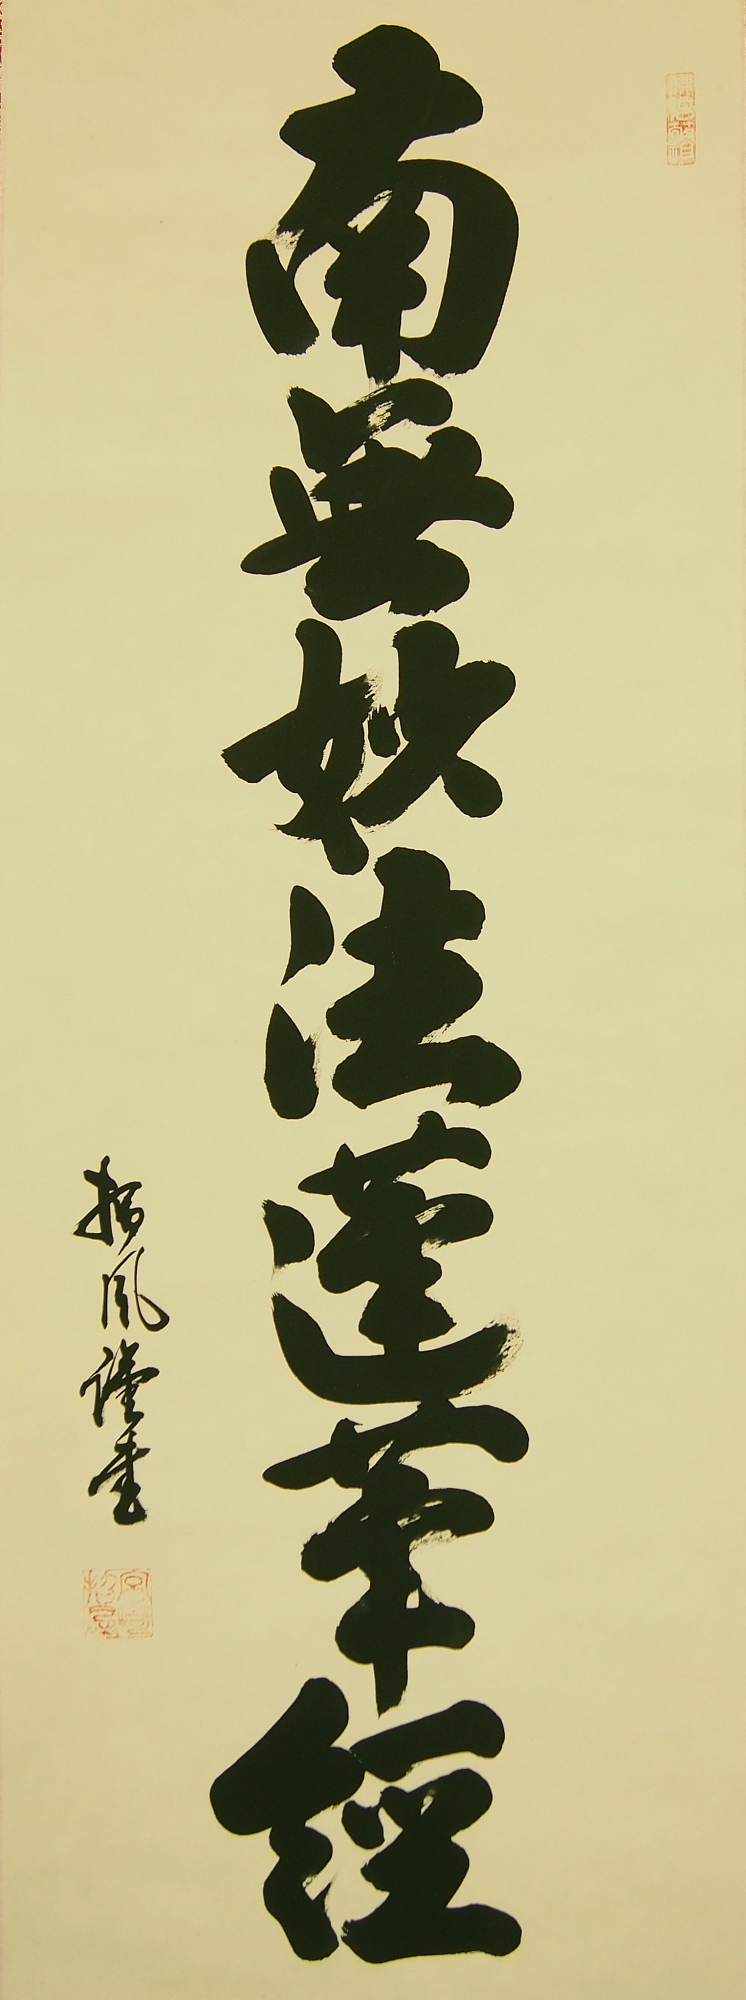 南無妙法蓮華經
招風謹書